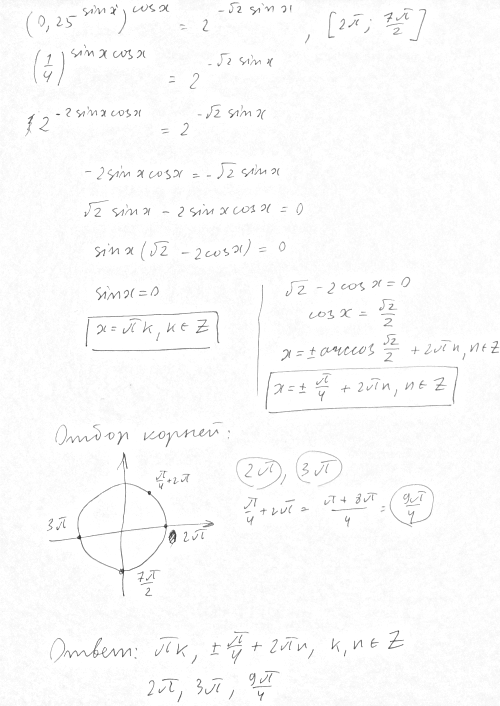 (0,25^{sin x})^{cos x} = 2^{-√2 sin x}, [2π; 7π/2]
(1/4)^{sin x cos x} = 2^{-√2 sin x}
2^{-2 sin x cos x} = 2^{-√2 sin x}
-2 sin x cos x = -√2 sin x
√2 sin x - 2 sin x cos x = 0
sin x (√2 - 2cos x) = 0
sin x = 0
x = πk, k ∈ Z
√2 - 2 cos x = 0
cos x = √2/2
x = ± arccos √2/2 + 2πn, n ∈ Z
x = ± π/4 + 2πn, n ∈ Z
Отбор корней:
π/4 + 2π
3π
2π
7π/2
2π, 3π
π/4 + 2π = π + 8π/4 = 9π/4
Ответ: πk, ± π/4 + 2πn, k, n ∈ Z
2π, 3π, 9π/4